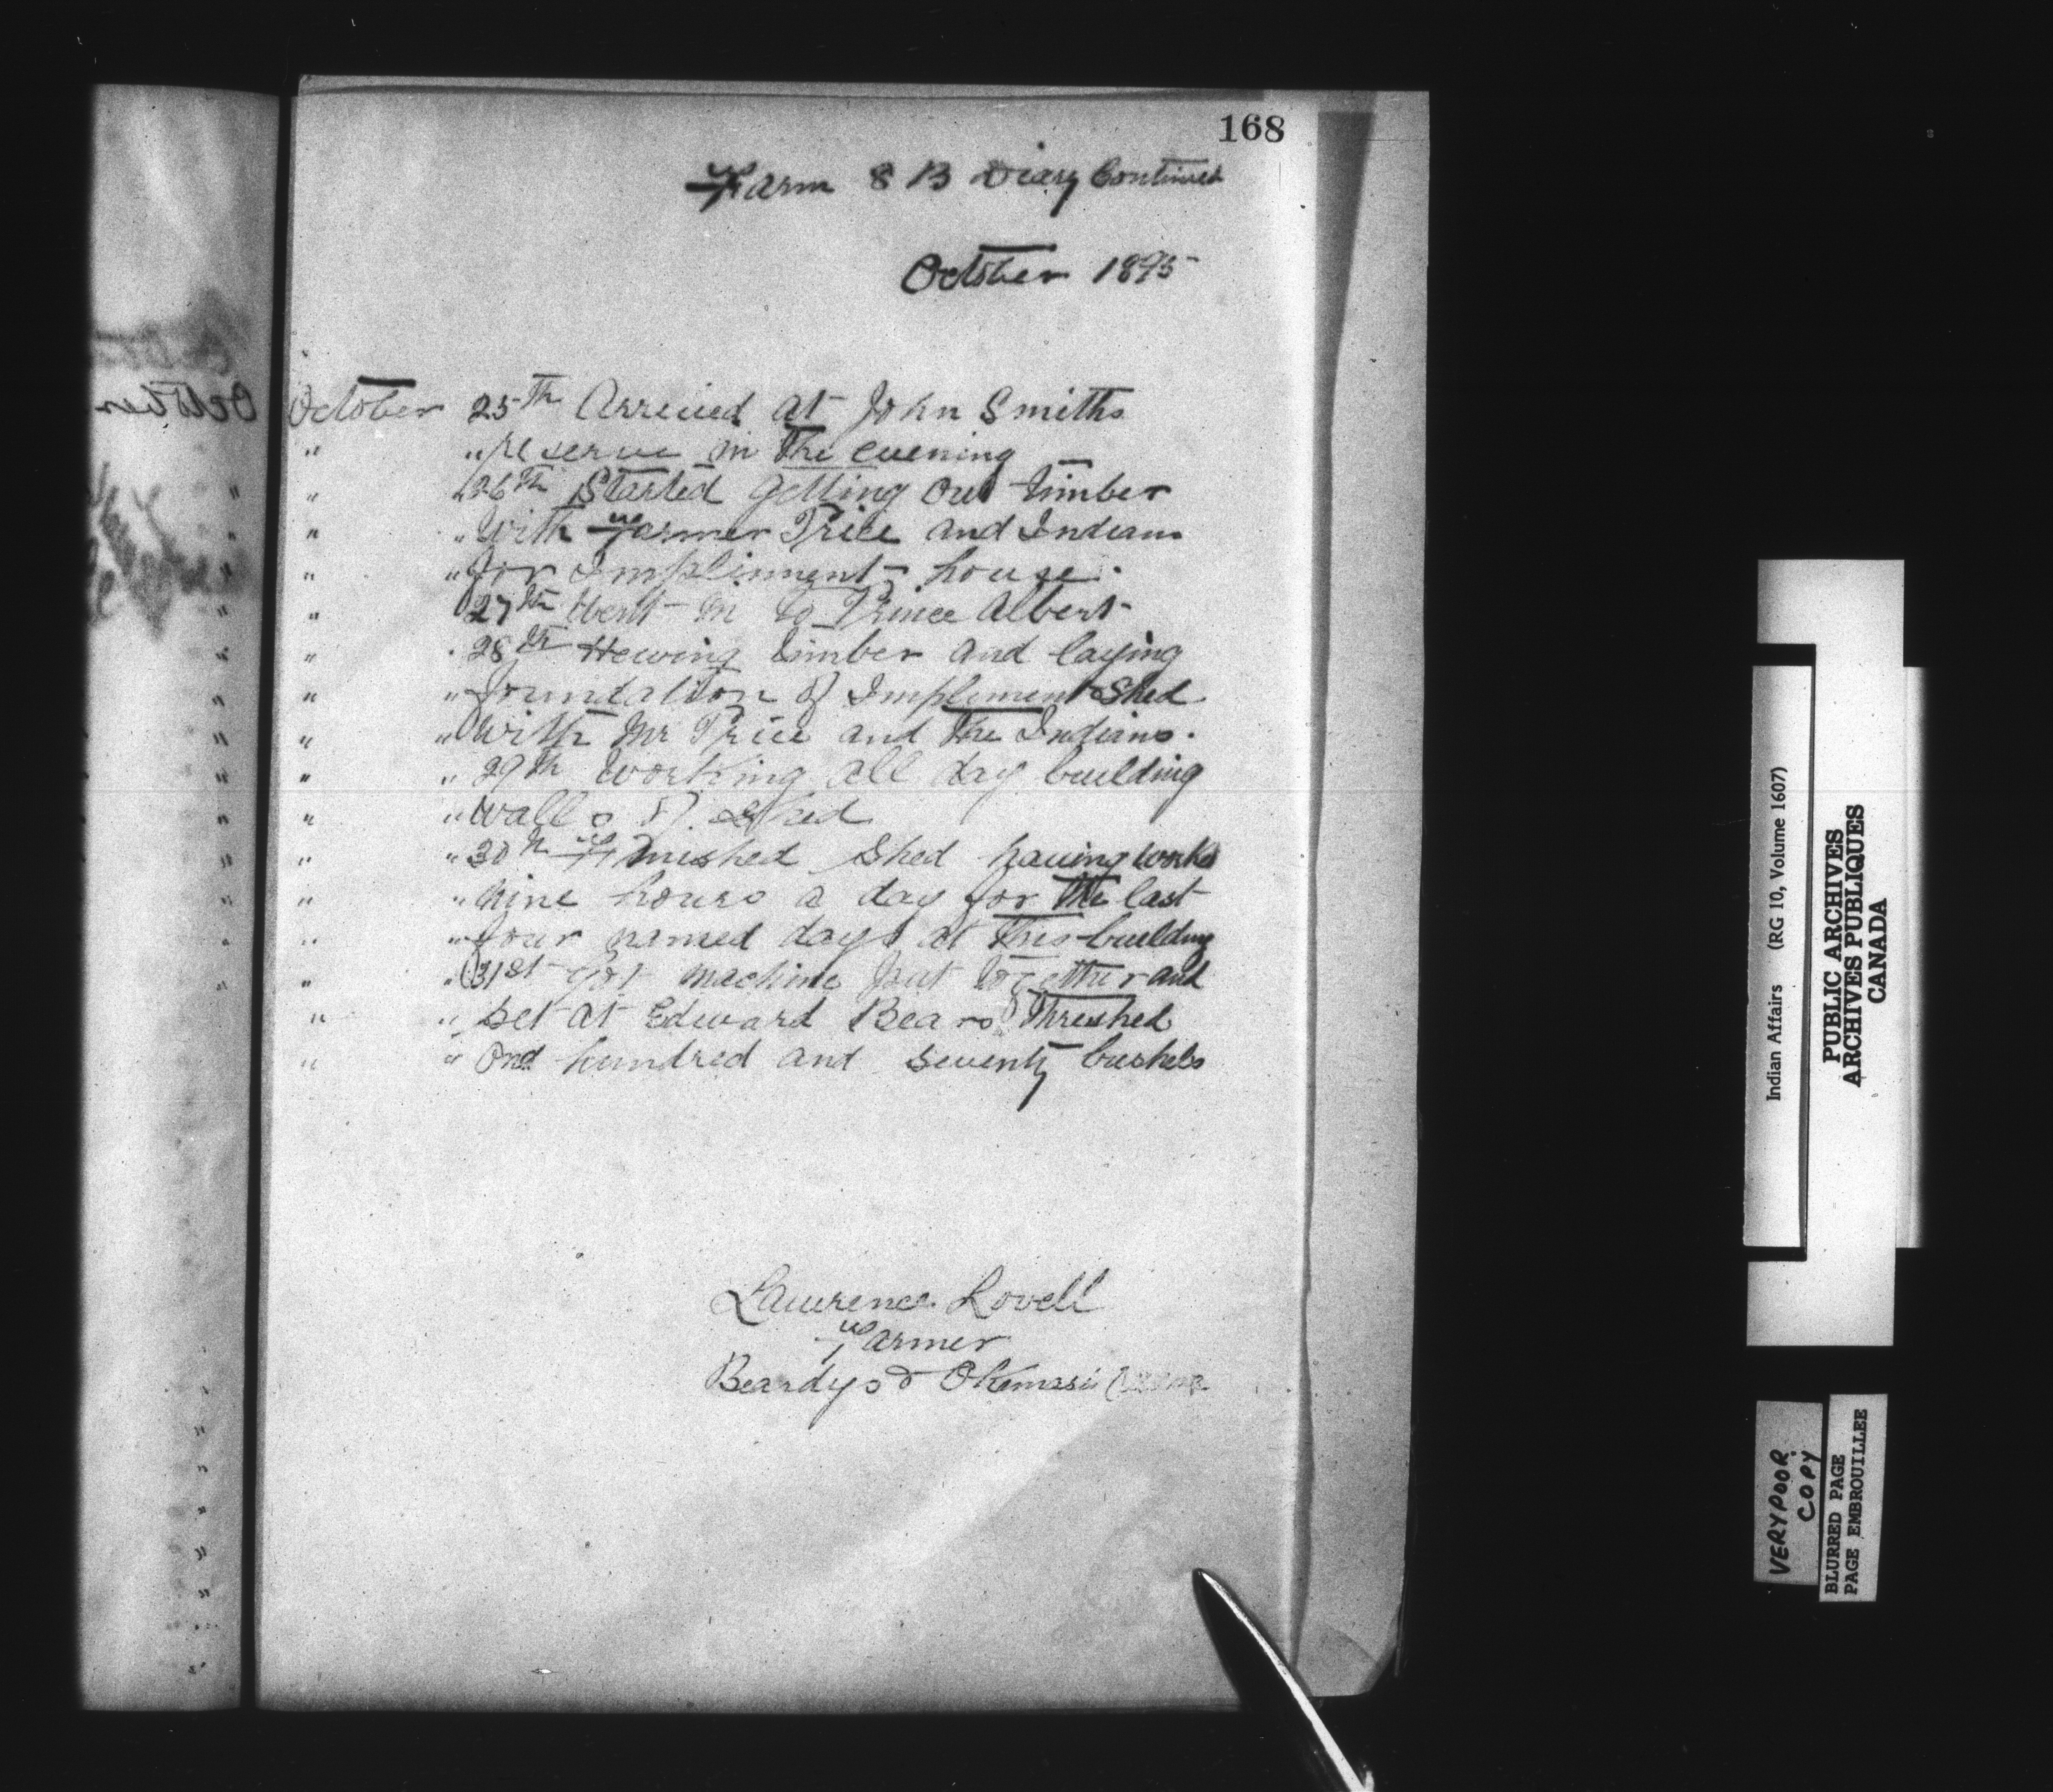 168
Farm 8 B Diary Continued
October 1895
October 25th Arrived at John Smiths
" " reserve in the evening
" " 26th Started getting out timber
" " With Farmer Price and Indians
" " for Impliment house.
" 27th Went in to Prince Albert
" " 28th Hewing timber and laying
" " foundation of Impliment Shed
" " With Mr Price and the Indians.
" " 29th Working all day building
" " walls of Shed
" " 30th Finished Shed having worked
" " nine hours a day for the last
" " four named days at this building
" " 31st Got machine put together and
" " set at Edward Bears Threshed
" " One hundred and seventy bushels
Lawrence Lovell
Farmer
Beardys & Okemasis
October
Indian Affairs (RG 10, Volume 1607)
PUBLIC ARCHIVES
ARCHIVES PUBLIQUES
CANADA
VERY POOR
COPY
BLURRED PAGE
PAGE EMBROUILLEE